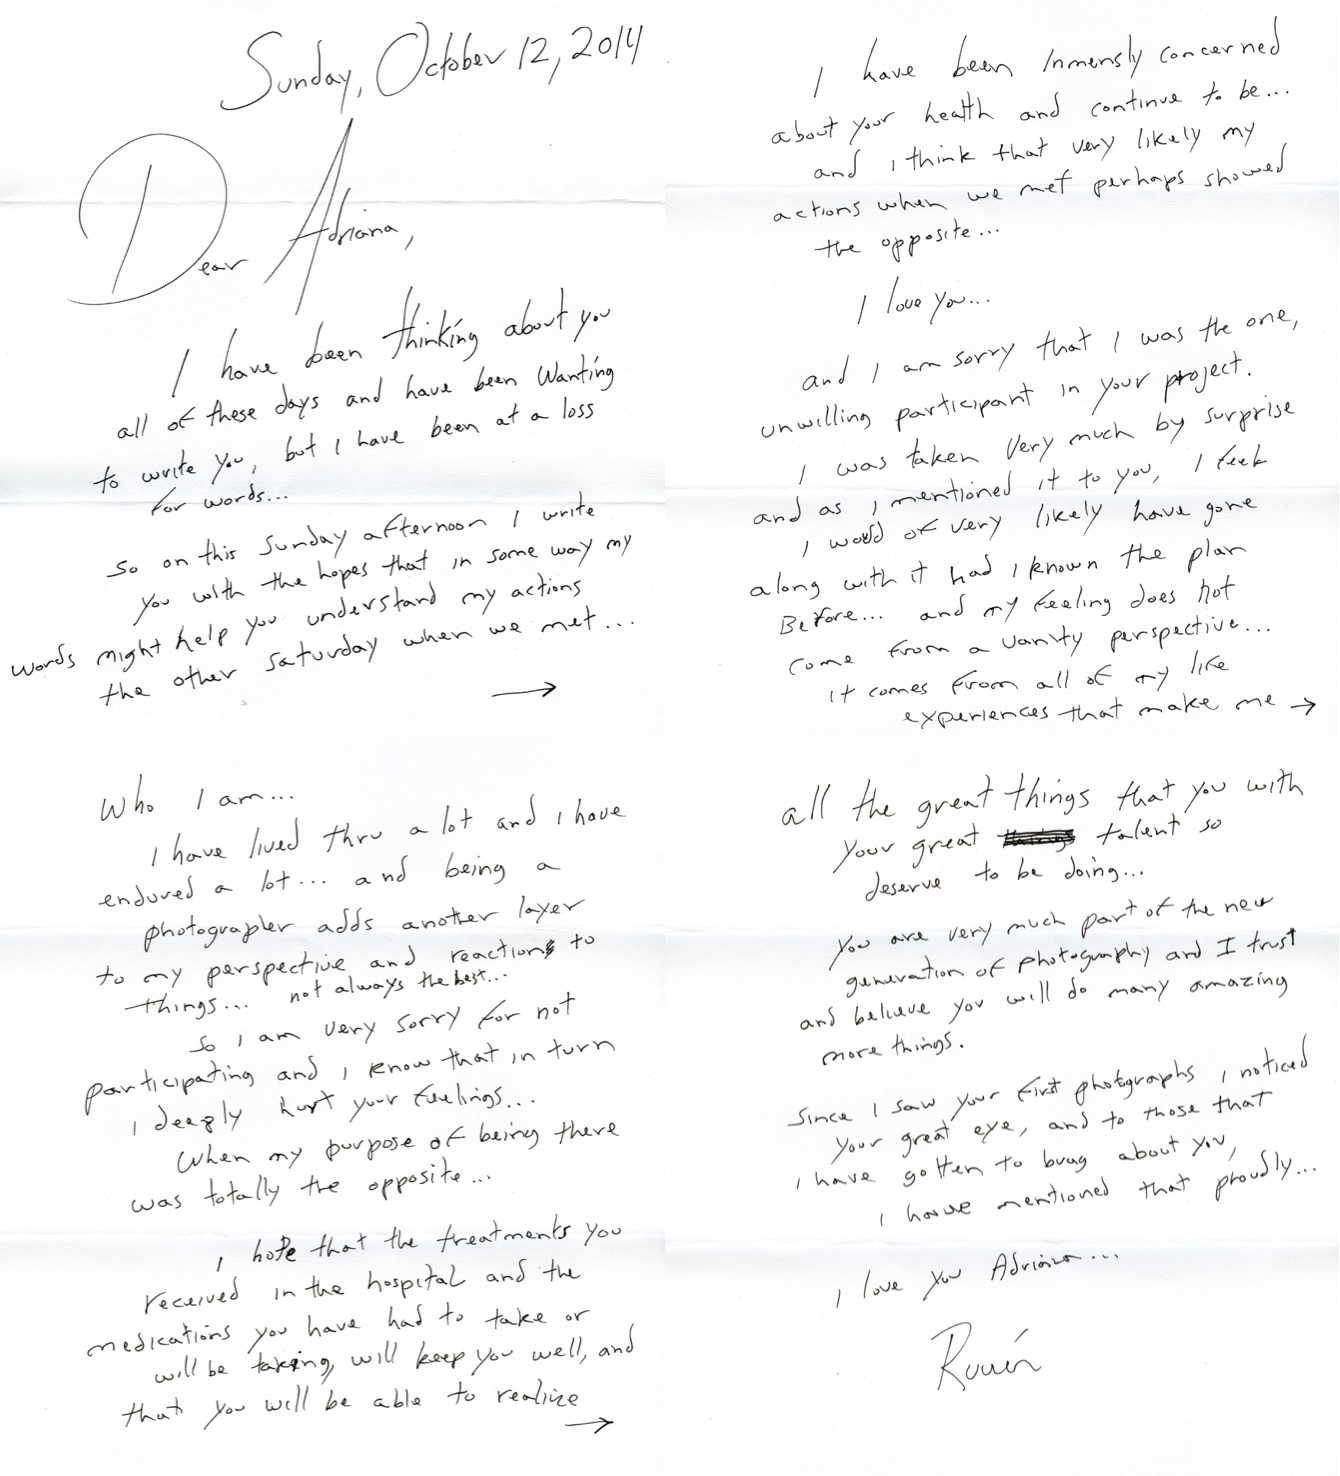 Sunday, October 12, 2014
Dear Adriana,
I have been thinking about you
all of these days and have been wanting
to write you, but I have been at a loss
for words...
So on this Sunday afternoon I write
you with the hopes that in some way my
words might help you understand my actions
the other Saturday when we met...
→
I have been Inmensly concerned
about your health and continue to be...
and I think that very likely my
actions when we met perhaps showed
the opposite...
I love you...
and I am sorry that I was the one,
unwilling participant in your project.
I was taken very much by surprise
and as I mentioned it to you, I feel
I would of very likely have gone
along with it had I known the plan
Before... and my feeling does not
come from a vanity perspective...
it comes from all of my life
experiences that make me →
Who I am...
I have lived thru a lot and I have
endured a lot... and being a
photographer adds another layer
to my perspective and reactions to
things... not always the best...
So I am very sorry for not
participating and I know that in turn
I deeply hurt your feelings...
When my purpose of being there
was totally the opposite...
I hope that the treatments you
received in the hospital and the
medications you have had to take or
will be taking, will keep you well, and
that you will be able to realize
→
all the great things that you with
your great talent so
deserve to be doing...
You are very much part of the new
generation of photography and I trust
and believe you will do many amazing
more things.
Since I saw your first photographs I noticed
your great eye, and to those that
I have gotten to brag about you,
I have mentioned that proudly...
I love you Adriana...